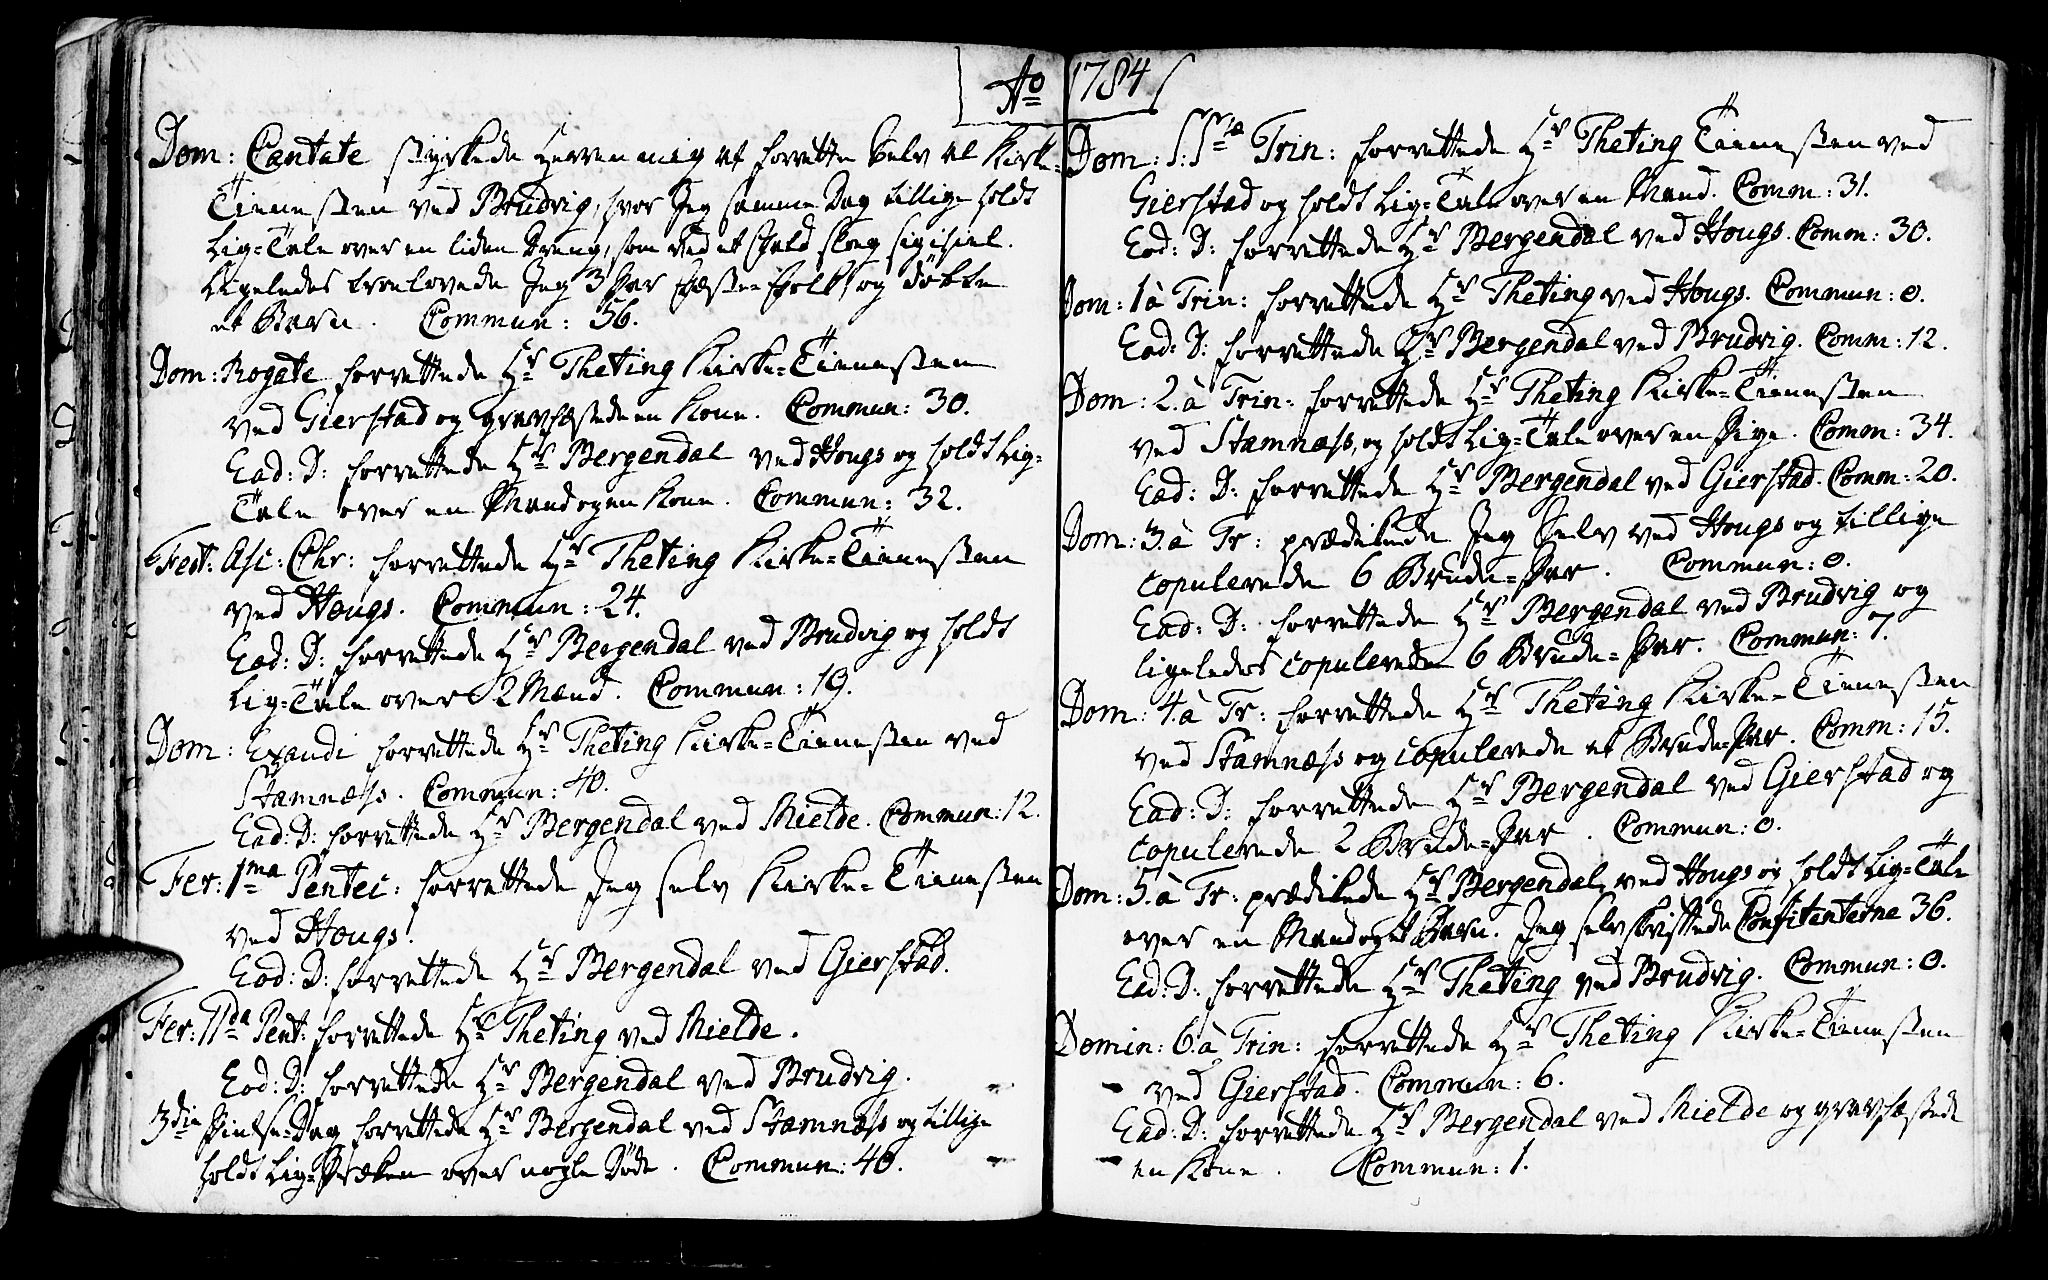 Ao 1784
Dom: Cantate styrkede Herren mig at forrette selv al Kirke=
Tienesten ved Brudvig, hvor Jeg samme Dag tillige holdt
Lig=Tale over en liden Dreng, som ved et Fald slog sig ihiel.
Ligeledes trolovede Jeg 3 Par Fæste=Folk, og døbte
et Barn. Commun: 56.
Dom: Rogate forrettede Hr Theting Kirke=Tienesten
ved Gierstad og gravfæstede en Kone. Commun: 30.
Ead: D: forrettede Hr Bergendal ved Hougs og holdt Lig=
Tale over en Mand og en Kone. Commun: 32.
Fest: Asc: Chr: forrettede Hr Theting Kirke=Tienesten
ved Hougs. Commun: 24.
Ead: D: forrettede Hr Bergendal ved Brudvig og holdt
Lig=Tale over 2 Mænd. Commun: 19.
Dom: Exaudi forrettede Hr Theting Kirke=Tienesten ved
Stamnæss. Commun: 40.
Ead: D: forrettede Hr Bergendal ved Mielde. Commun: 12.
Fer: 1ma Pentec: forrettede Jeg selv Kirke=Tienesten
ved Hougs.
Eod: D: forrettede Hr Bergendal ved Gierstad.
Fer: IIda Pent: forrettede Hr Theting ved Mielde.
Eod: D: forrettede Hr Bergendal ved Brudvig.
3die Pintse=Dag forrettede Hr Bergendal ved Stamnæss og tillige
holdt Lig=Præken over nogle Døde. Commun: 40.
Dom: S:Stæ Trin: forrettede Hr Theting Tienesten ved
Gierstad og holdt Lig=Tale over en Mand. Comm: 31.
Eod: D: forrettede Hr Bergendal ved Hougs. Comm: 30.
Dom: 1 à Trin: forrettede Hr Theting ved Hougs. Commun: 0.
Ead: D: forrettede Hr Bergendal ved Brudvig. Comm: 12.
Dom: 2. à Trin: forrettede Hr Theting Kirke=Tienesten
ved Stamnæss, og holdt Lig=Tale over en Pige. Comm: 34.
Ead: D: forrettede Hr Bergendal ved Gierstad. Comm: 20.
Dom: 3. à Tr: prædikede Jeg Selv ved Hougs og tillige
copulerede 6 Brude=Par. Commun: 0.
Ead: D: forrettede Hr Bergendal ved Brudvig og
ligeledes copulerede 6 Brude=Par. Commun: 7.
Dom: 4. à Tr: forrettede Hr Theting Kirke=Tienesten
ved Stamnæss og copulerede et Brude=Par. Comm: 15.
Ead: D: forrettede Hr Bergendal ved Gierstad og
copulerede 2 Brude=Par. Commun: 0.
Dom: 5. à Tr: prædikede Hr Bergendal ved Hougs og holdt Lig=Tale
over en Mand og et Barn. Jeg selv skriftede Confitenterne 36.
Ead: D: forrettede Hr Theting ved Brudvig. Commun: 0.
Domin: 6. à Trin: forrettede Hr Theting Kirke=Tienesten
ved Gierstad. Commun: 6.
Ead: D: forrettede Hr Bergendal ved Mielde og gravfæstede
en Kone. Commun: 1.